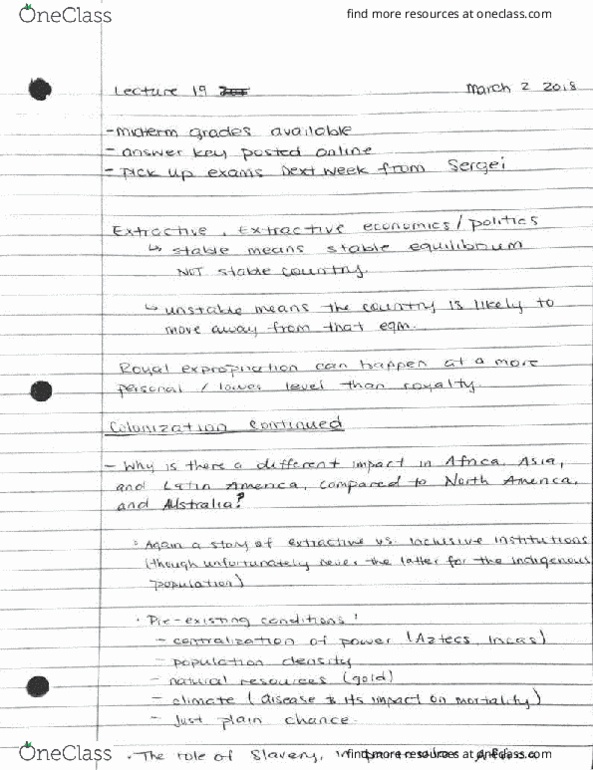 OneClass find more resources at oneclass.com
Lecture 19 March 2 2018
- midterm grades available
- answer key posted online
- pick up exams next week from Sergei
Extractive, Extractive economics/politics
↳ stable means stable equilibrium
NOT stable country.
↳ unstable means the country is likely to
move away from that eqm.
Royal expropriation can happen at a more
personal / lower level than royalty.
Colonization continued
- Why is there a different impact in Africa, Asia,
and Latin America, compared to North America,
and Australia?
· Again a story of extractive vs. inclusive institutions
(though unfortunately never the latter for the indigenous
population)
· Pre-existing conditions:
- centralization of power (Aztecs, Incas)
- population density
- natural resources (gold)
- climate (disease & its impact on mortality)
- Just plain chance.
· The role of slavery,
OneClass find more resources at oneclass.com